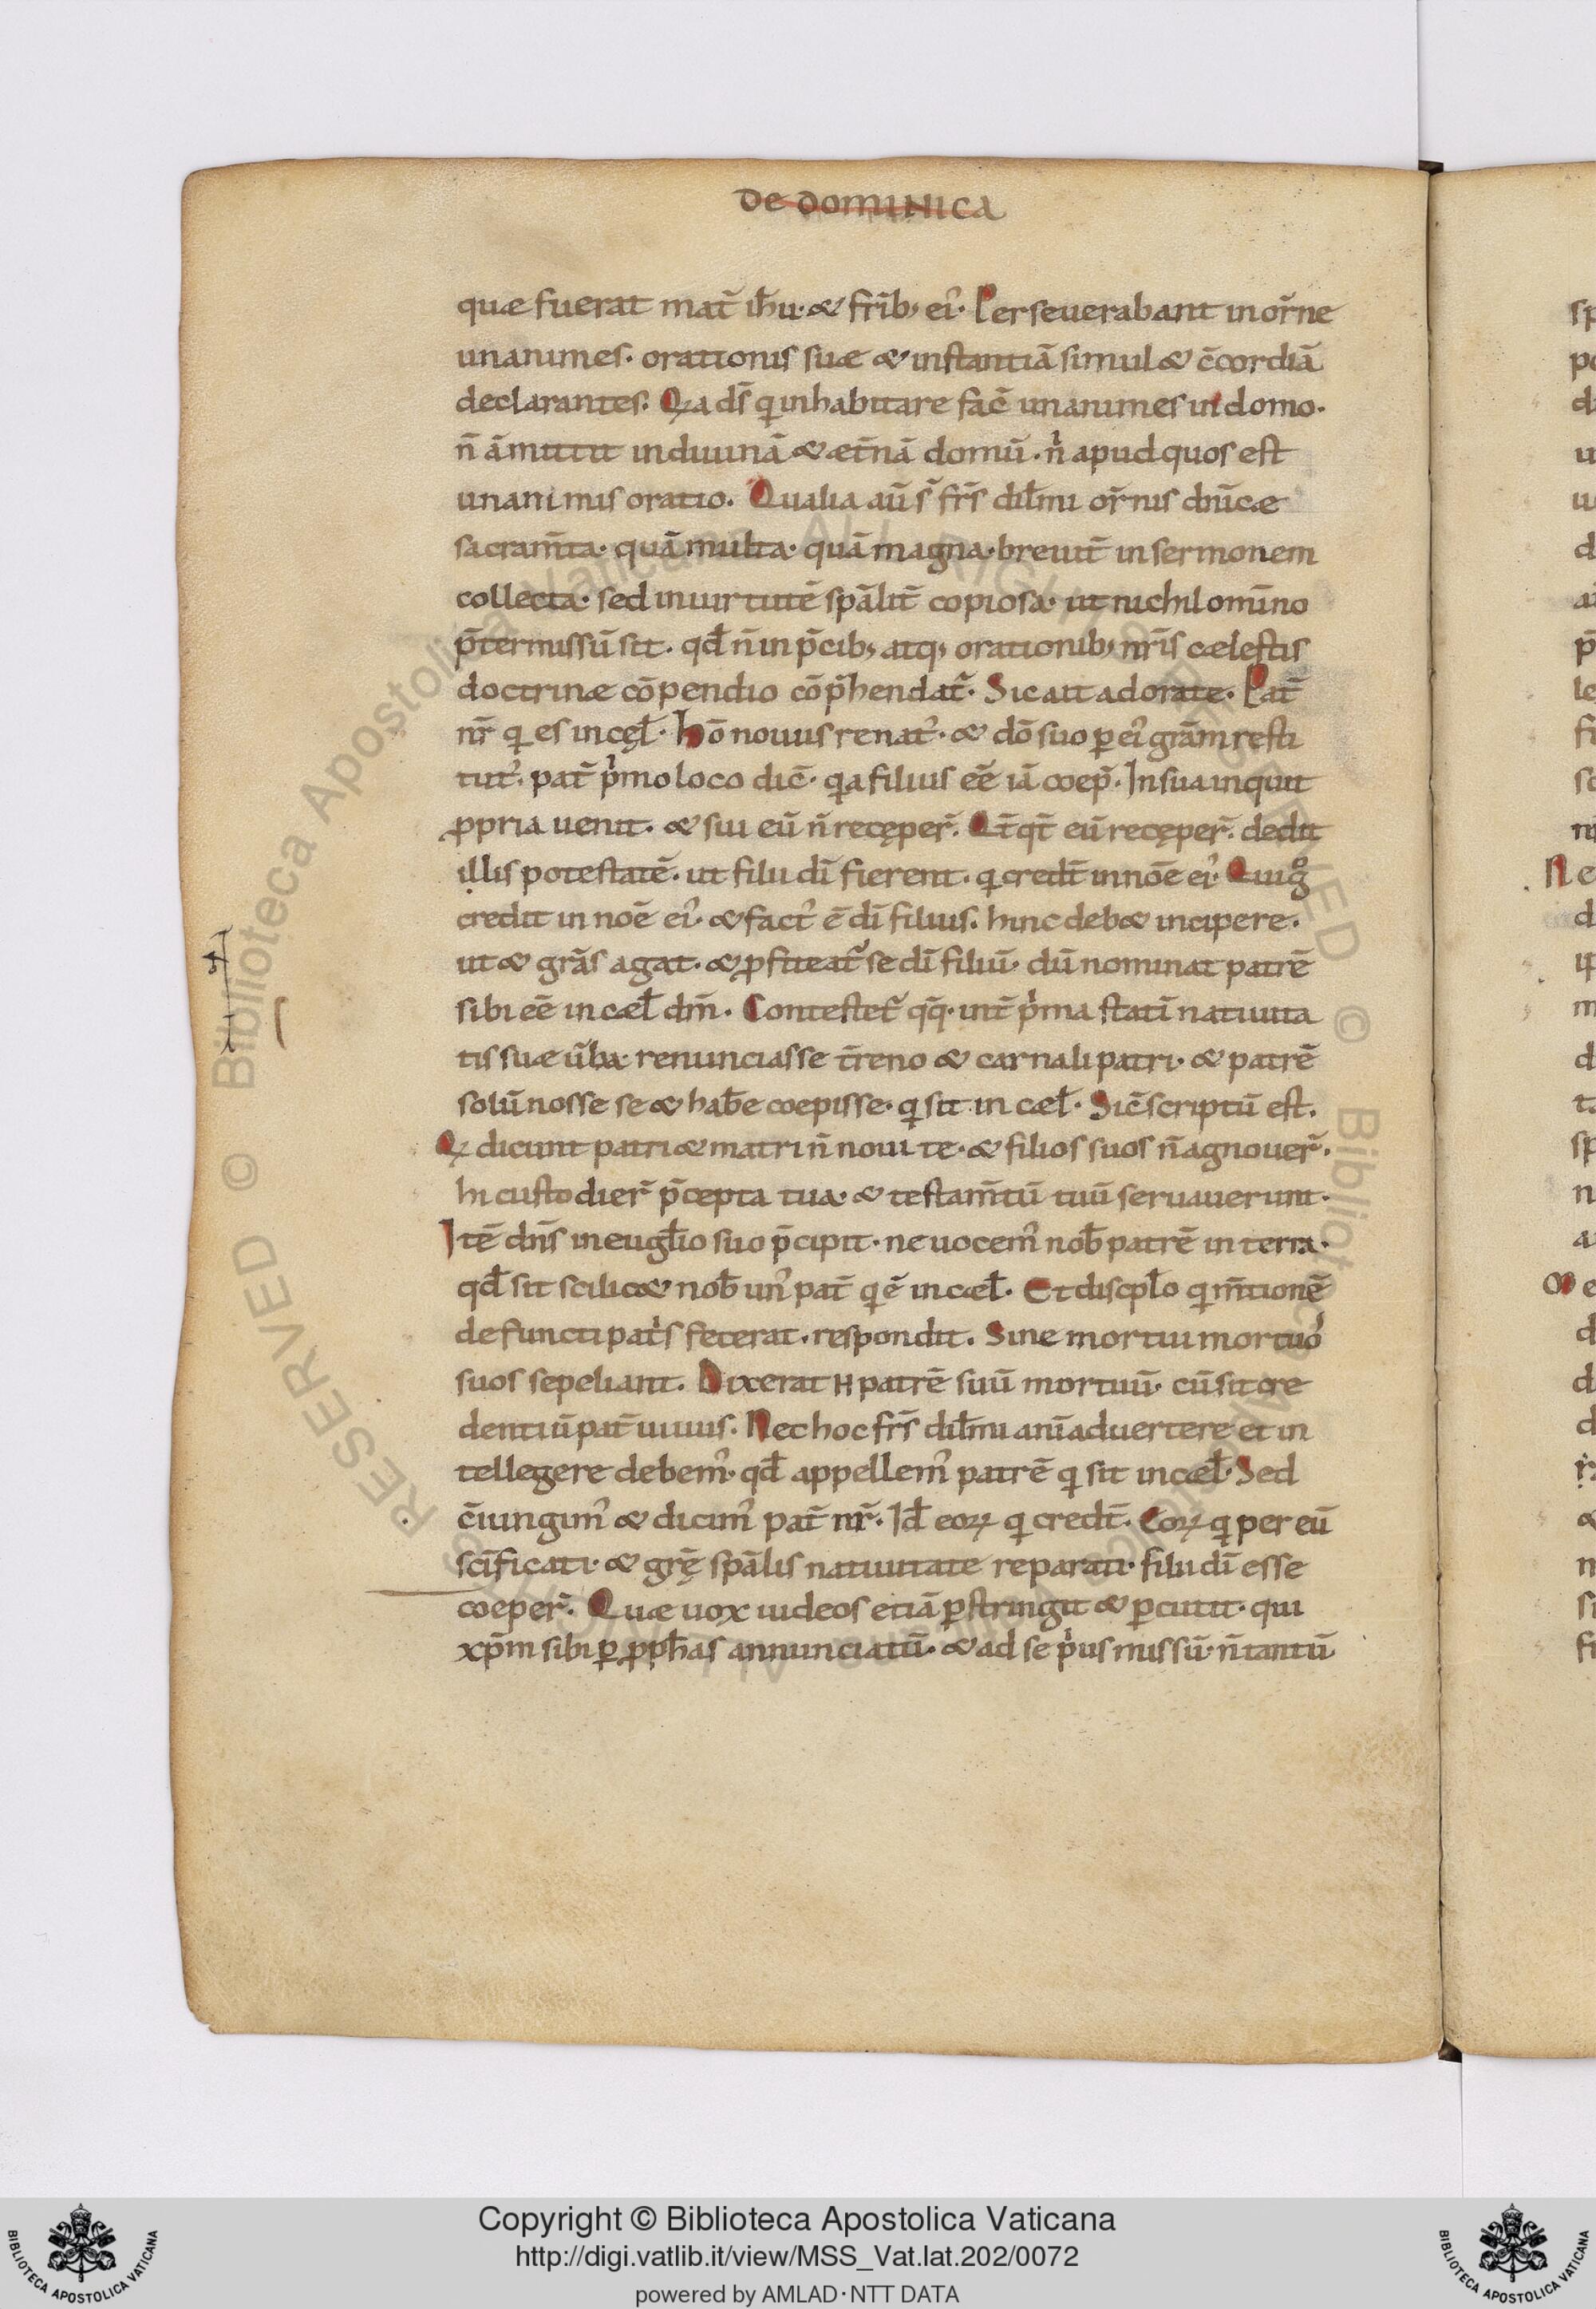 De DomiNica
quæ fuerat mat̄ ih̄u· & fr̄ib; ei᾽· Perseuerabant in or̄ne
unanimes· orationis suæ & instantiā simul & c̄cordiā
declarantes. Qꝛa ds̄ q inhabitare fac̄ unanimes in domo·
n̄ āmittit in diuinā & æt̄nā domū· n̄ apud quos est
unanimis oratio. Qualia aū s̄ fr̄s dil̄mi or̄nis dn̄icæ
sacram̄ta· quā multa· quā magna· breuit̄ in sermonem
collecta· sed in uirtutē spālit̄ copiosa· ut nichil omīno
p̄termissū sit· qd̄ n̄ in p̄cib; atq; orationib; nr̄is cælestis
doctrinæ cōpendio cōp̄hendat᷑· Sic ait adorate· Pat̄
nr̄ q es in cęl̄· hō nouus renat᾽· & dō suo ꝑ ei᾽ grām resti
tut᾽· pat̄ pⁱmo loco dic̄· qa filius eē iā coep̄· In sua inquit
ꝓpria uenit· & sui eū n̄ recęper̄· Qt̄qt̄ eū recęper̄· dedit
illis potestatē· ut filii dī fierent· q credt̄ in noē ei᾽· Qui gͦ
credit in noē ei᾽· & fact᾽ ē dī filius· hinc deb& incipere·
ut & grās agat· & ꝓfiteat᷑ se dī filiū· dū nominat patrē
sibi eē in cæl̄ dm̄· Contestet᷑ qq̄· int̄ pⁱma statī natiuita
tis suæ ūba· renunciasse t̄reno & carnali patri· & patrē
solū nosse se & hab̄e coepisse· q sit in cæl̄· Sic̄ scriptū est·
Qꝛ dicunt patri & matri n̄ noui te· & filios suos n̄ agnouer̄·
hi custodier̄ p̄cepta tua· & testam̄tū tuū seruauerunt·
Itē dn̄s in eugl̄io suo p̄cipit· ne uocem᾽ nob̄ patrē in terra·
qd̄ sit scilic& nob̄ un᾽ pat̄ q ē in cæl̄· Et discpl̄o q m̄tionē
defuncti patⁱs fecerat· respondit· Sine mortui mortuo᾽
suos sepeliant· Dixerat H patrē suū mortuū· cū sit cre
dentiū pat̄ uiuus· Nec hoc fr̄s dil̄mi anīaduertere et in
tellegere debem᾽· qd̄ appellem᾽ patrē q sit in cæl̄· Sed
c̄iungim᾽ & dicim᾽ pat̄ nr̄· Id̄ eoꝝ q credt̄· Eoꝝ q per eū
scīficati· & grę̄ spālis natiuitate reparati· filii dī esse
coeper̄· Quæ uox iudeos etiā ꝑstringit & ꝑcutit· qui
xp̄m sibi ꝑ ꝓph̄as annunciatū· & ad se pⁱus missū· n̄ tantū
Copyright © Biblioteca Apostolica Vaticana
http://digi.vatlib.it/view/MSS_Vat.lat.202/0072
powered by AMLAD·NTT DATA